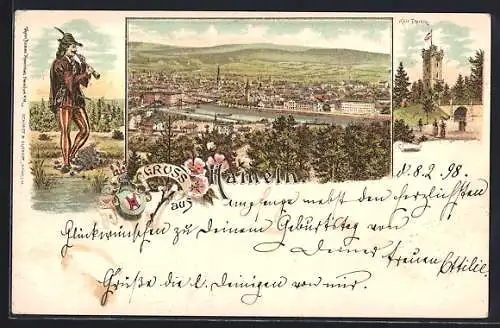 Klüt Turm
GRUSS
aus
Hameln
d. 8.2.98.
Empfange nebst den herzlichsten
Glückwünschen zu deinem Geburtstag von
Deiner treuen Ottilie.
Grüße die l. Deinigen von mir.